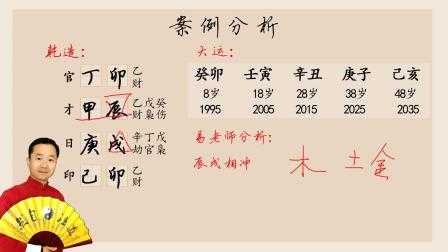 案例分析
乾造：
大运：
官 丁 卯 乙财
才 甲 辰 乙财 戊枭 癸伤
日 庚 戌 辛劫 丁官 戊枭
印 己 卯 乙财
癸卯 壬寅 辛丑 庚子 己亥
8岁 18岁 28岁 38岁 48岁
1995 2005 2015 2025 2035
易老师分析：
辰戌相冲
木 土 金